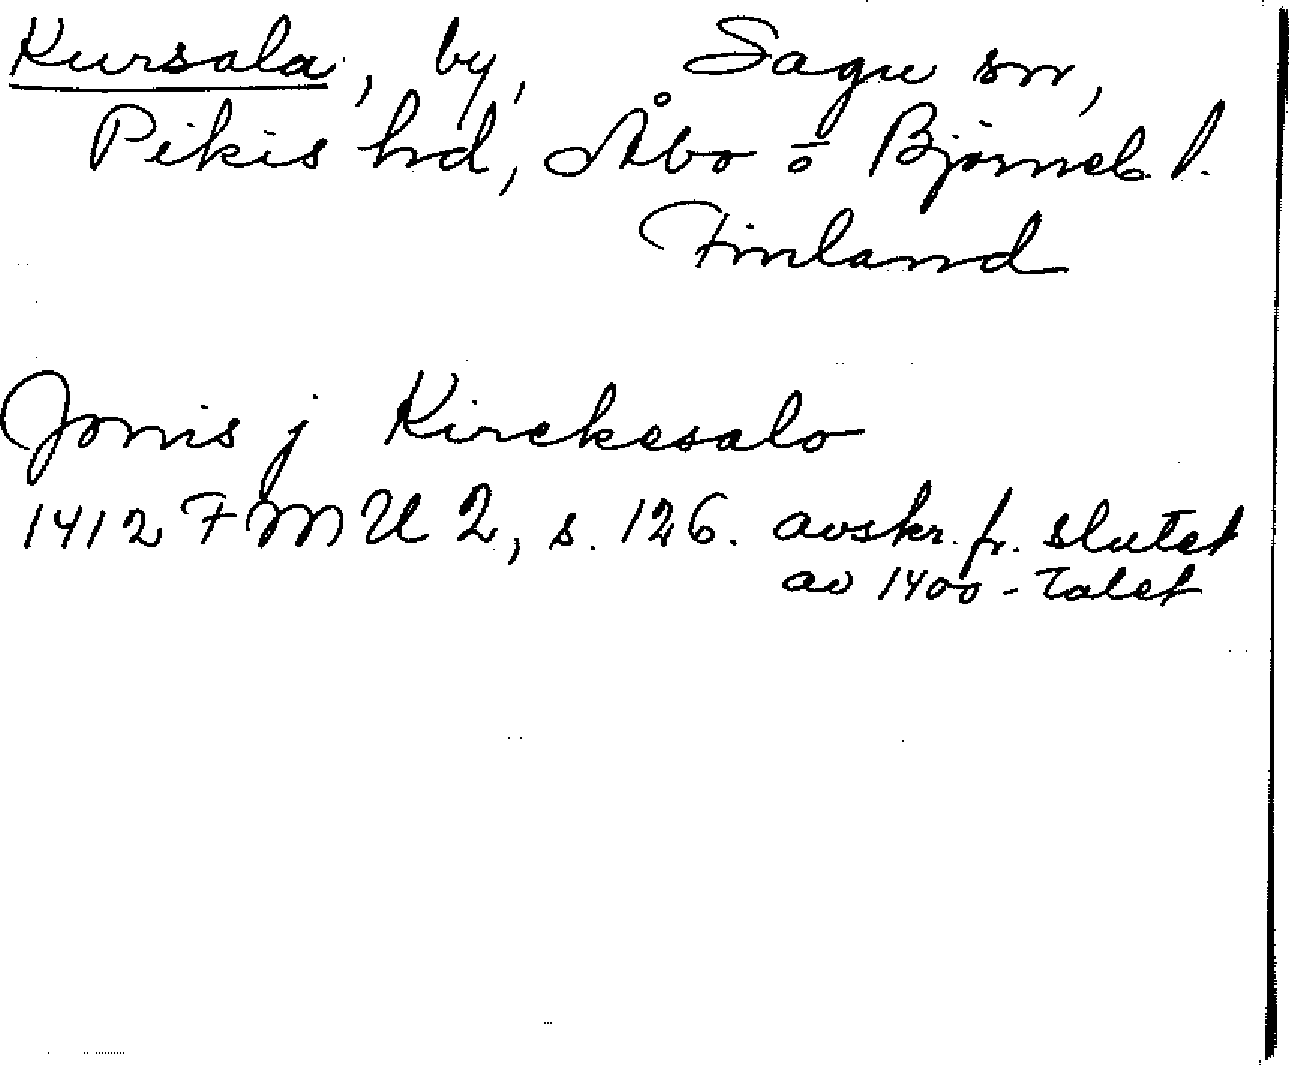 Kursala, by, Sagu sn,
Pikis hd, Åbo o Björneb. l.
Finland
Jonis j Kirckesalo
1412 FMU 2, s. 126. avskr. fr. slutet
av 1400-talet